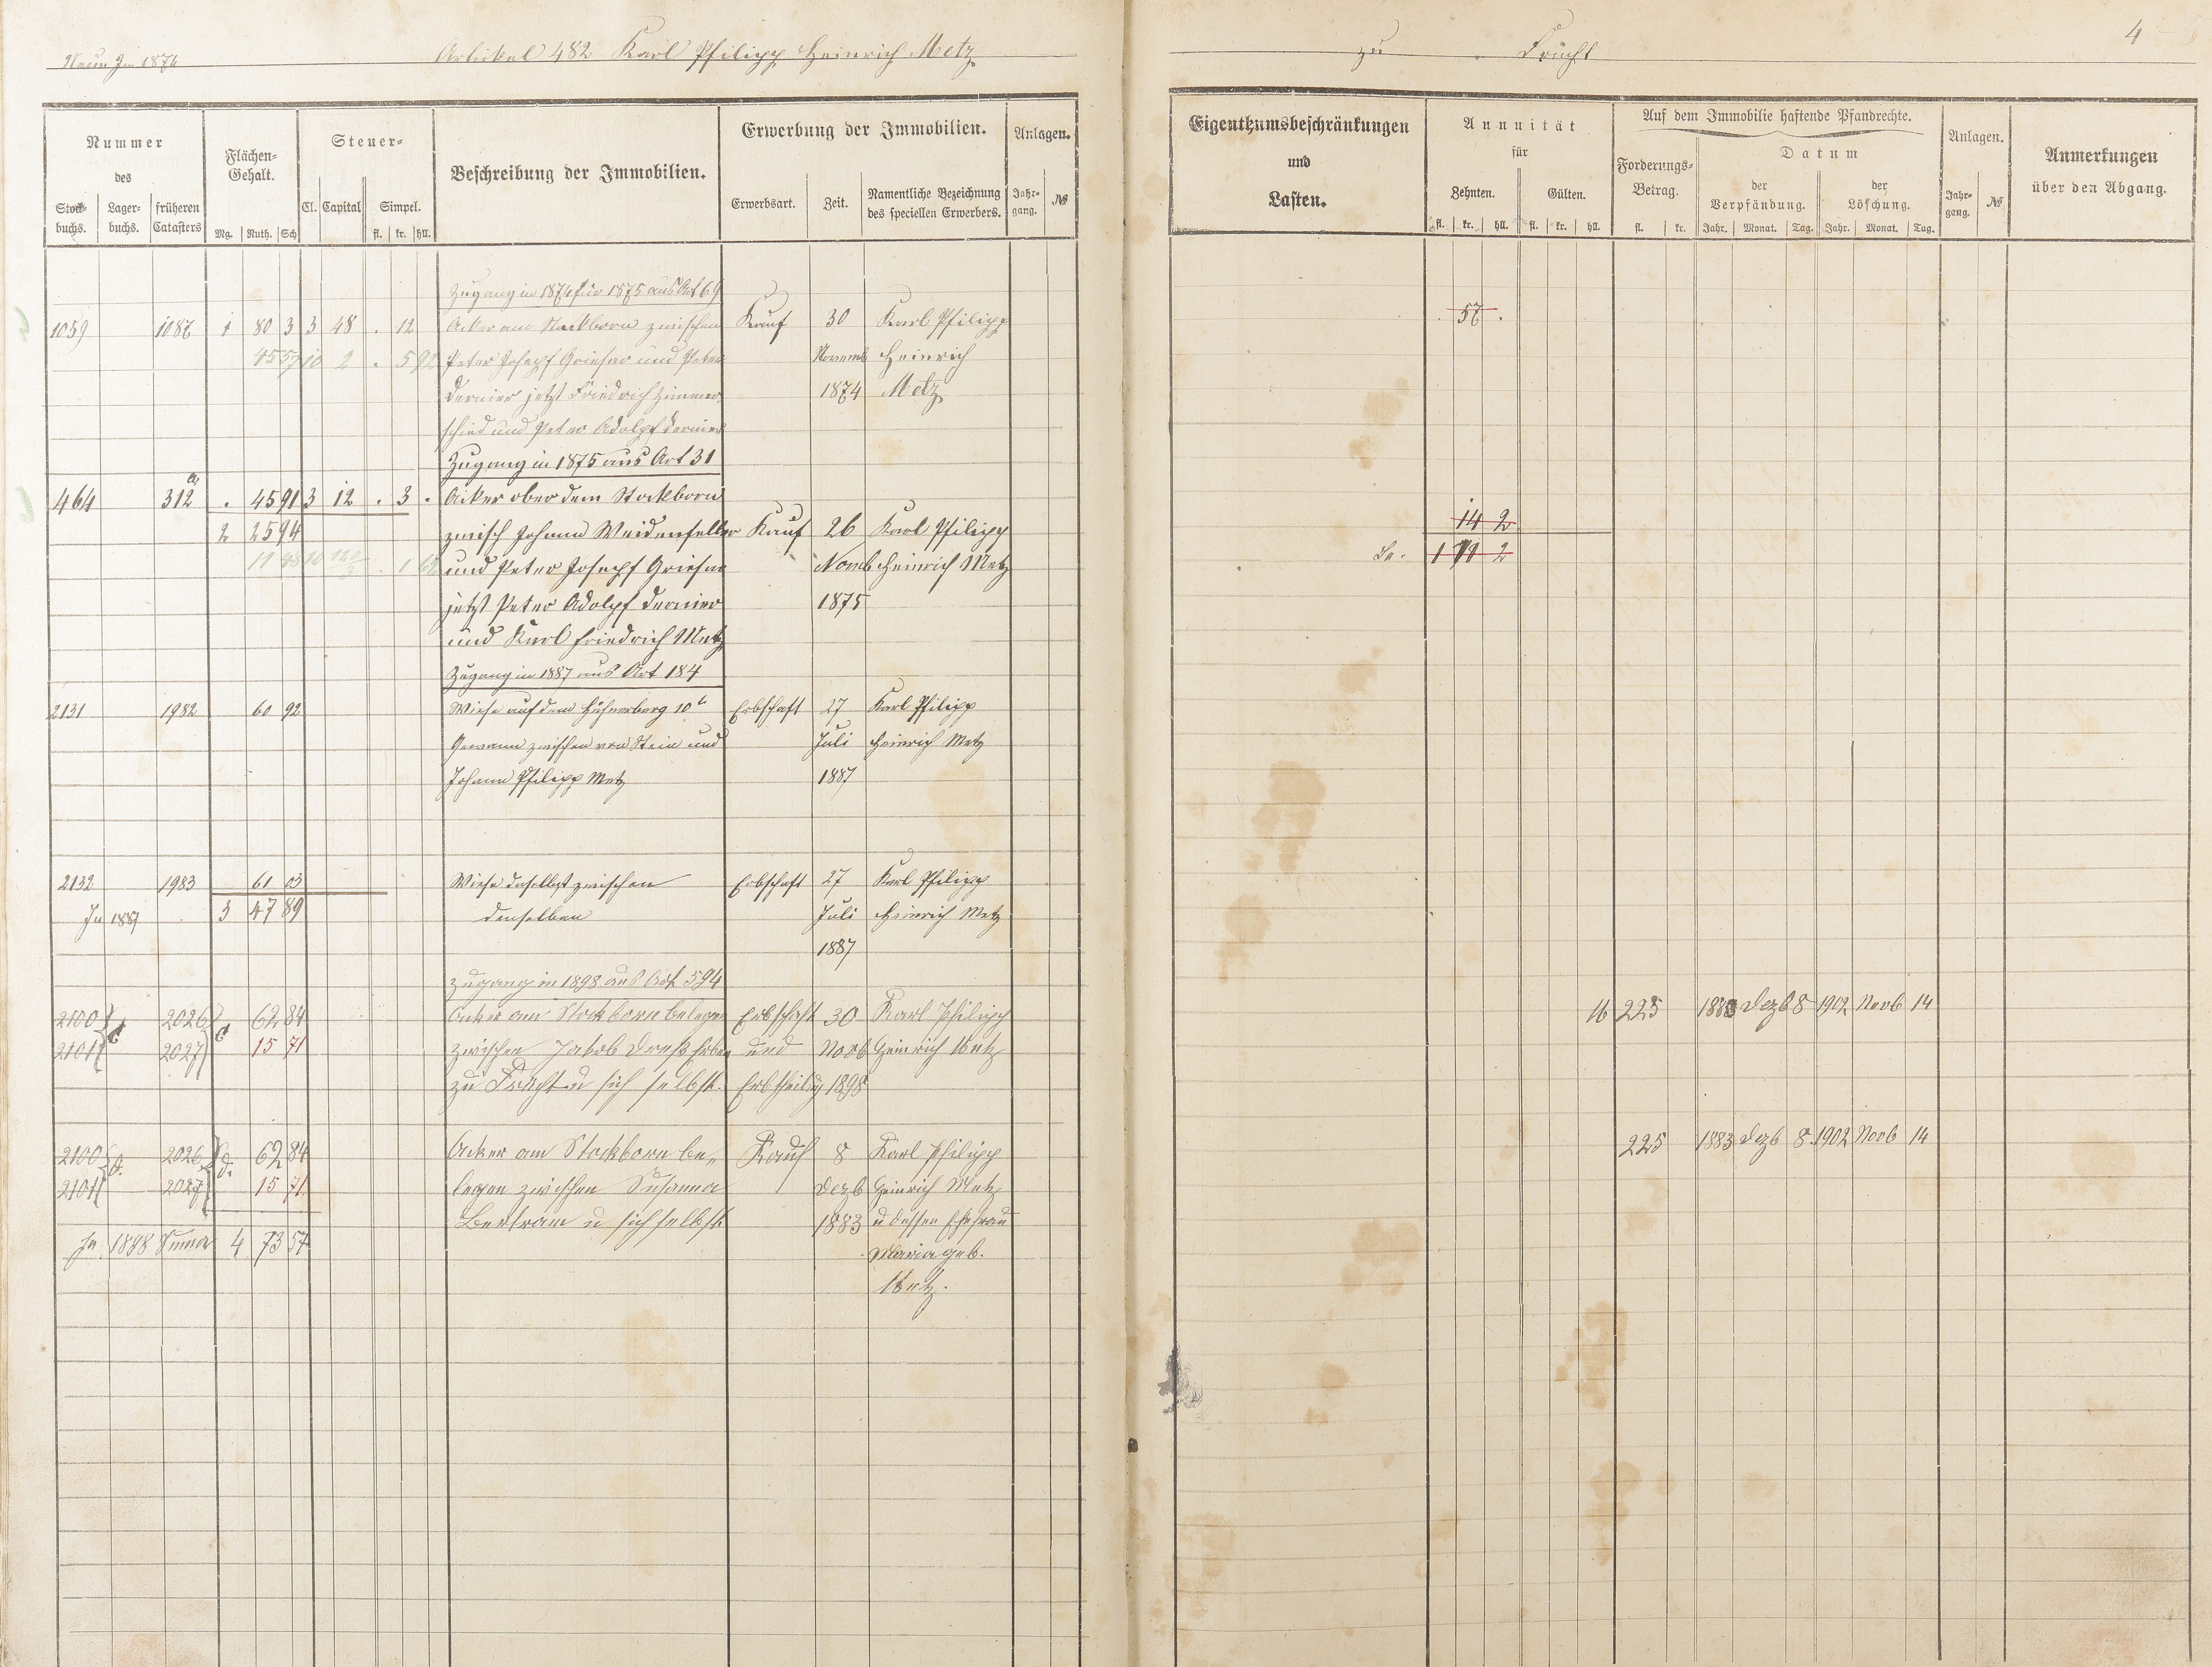 Artikel 482 Karl Philipp Heinrich Metz
zu Frücht
4
Nummer
des
Stock-buchs. Lager-buchs. früheren Catasters
Flächen-Gehalt.
Mg. Ruth. Sch
Steuer-
Cl. Capital Simpel.
fl. kr. hll.
Beschreibung der Immobilien.
Erwerbung der Immobilien.
Erwerbsart. Zeit. Namentliche Bezeichnung des speciellen Erwerbers.
Anlagen.
Jahr-gang. №
Eigenthumsbeschränkungen
und
Lasten.
Annuität
für
Zehnten. Gülten.
fl. kr. hll. fl. kr. hll.
Auf dem Immobilie haftende Pfandrechte.
Forderungs-Betrag.
fl. kr.
Datum
der Verpfändung. der Löschung.
Jahr. Monat. Tag. Jahr. Monat. Tag.
Anlagen.
Jahr-gang. №
Anmerkungen
über den Abgang.
Zugang in 1874 für 1875 aus Art 69
1059 1087 1 80 3 3 48 . 12 Acker am Stockborn zwischen Kauf 30 Karl Philipp 57 .
Peter Joseph Griesar und Peter Novemb Heinrich
Dernier jetzt Friedrich Zimmer 1874 Metz
schied und Peter Adolph Dernier
Zugang in 1875 aus Art 31
464 312 a . 45 91 3 12 . 3 . Acker ober dem Stockborn 14 2
2 25 94 zwisch Johann Weidenfeller Kauf 26 Karl Philipp
und Peter Joseph Griesar Novb Heinrich Metz 1 11 2
jetzt Peter Adolph Dernier 1875
und Karl Friedrich Metz
Zugang in 1887 aus Art 184
2131 1982 60 92 Wiese auf dem Hühnerberg 10t Erbschaft 27 Karl Philipp
Gewann zwischen von Stein und Juli Heinrich Metz
Johann Philipp Metz 1887
2132 1983 61 03 Wiese daselbst zwischen Erbschaft 27 Karl Philipp
In 1887 3 47 89 denselben Juli Heinrich Metz
1887
Zugang in 1898 aus Art 594
2100 2026 62 84 Acker am Stockborn belegen Erbschaft 30 Karl Philipp 16 225 1883 Dezb 8 1902 Novb 14
2101 2027 15 71 zwischen Jakob Erben und Novb Heinrich Metz
zu Frücht u sich selbst. Erbtheilg 1898
2100 2026 62 84 Acker am Stockborn be- Kauf 8 Karl Philipp 225 1883 Dezb 8. 1902 Novb 14
2101 2027 15 71 legen zwischen Susanna Dezb Heinrich Metz
Bertram u sich selbst 1883 u dessen Ehefrau
In 1898 Summa 4 73 57 Maria geb.
Metz.